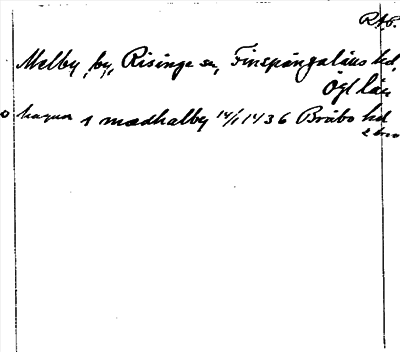 RAP.
Melby, by, Risinge sn, Finspångaläns hd,
Ögl län
i mædhalby 14/1 1436 Bråbo hd